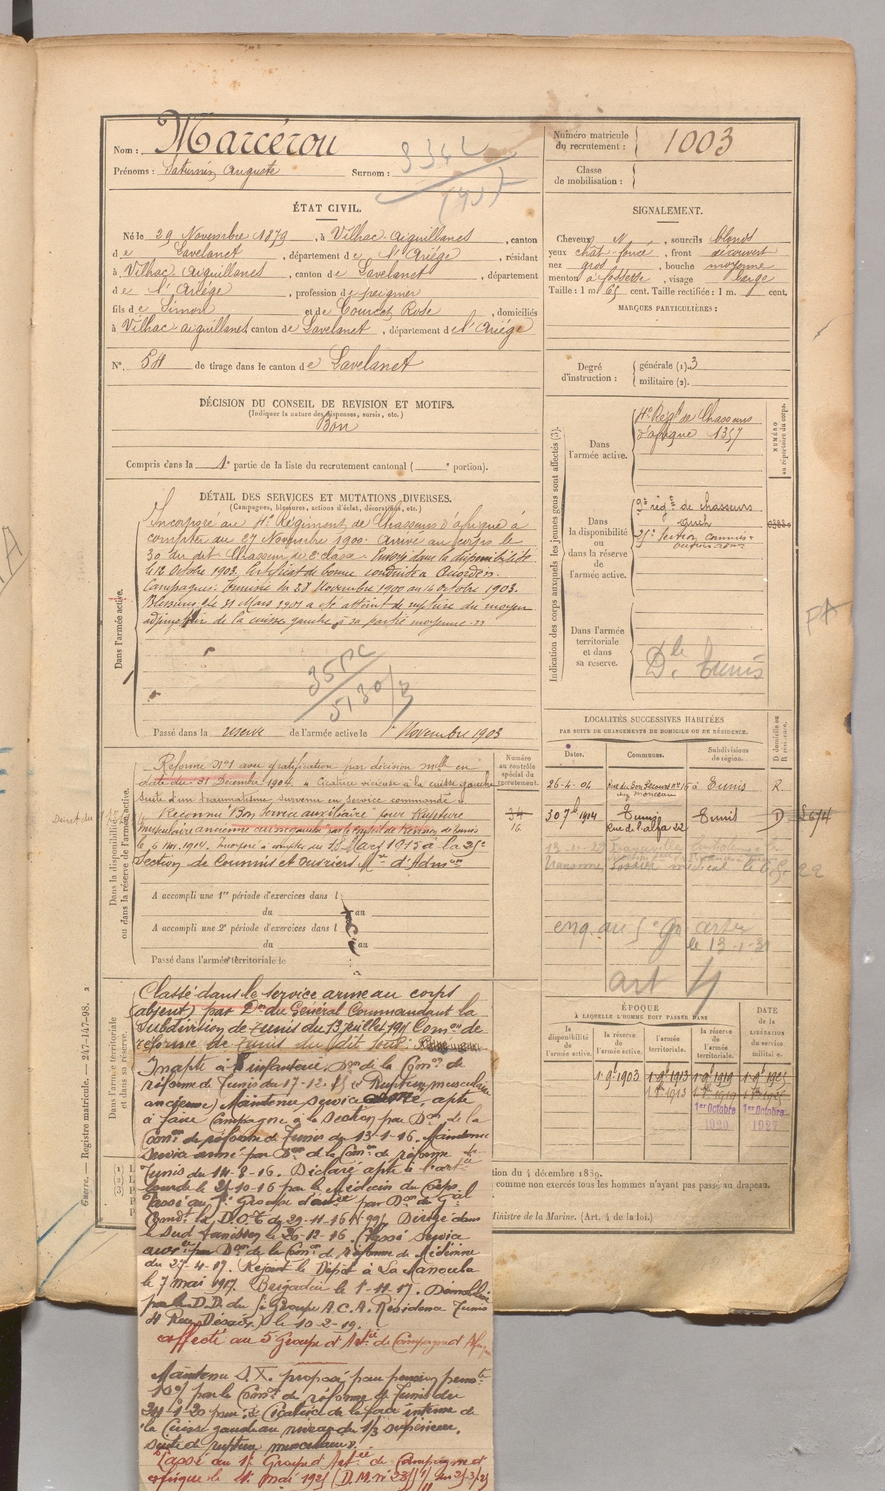 Nom : Marcérou
Prénoms : Saturnin Auguste Surnom :
Numéro matricule du recrutement : 1003
Classe de mobilisation :
ÉTAT CIVIL.
Né le 29 Novembre 1879, à Vilhac-Aiguillanes, canton
de Lavelanet, département de l'Ariége, résidant
à Vilhac Aiguillanes, canton de Lavelanet, département
de l'Ariége, profession de
fils de Simon et de Courcet Rose, domiciliés
à Vilhac aiguillanes canton de Lavelanet, département de l'Ariége
N°. 54 de tirage dans le canton de Lavelanet
SIGNALEMENT.
Cheveux N, sourcils blonds
yeux chât-foncé, front découvert
nez gros, bouche moyenne
menton à fossette, visage large
Taille : 1 m. 65 cent. Taille rectifiée : 1 m. cent.
MARQUES PARTICULIÈRES :
Degré d'instruction : générale (1). 3
militaire (2).
DÉCISION DU CONSEIL DE REVISION ET MOTIFS.
(Indiquer la nature des dispenses, sursis, etc.)
Bon
Compris dans la 1e partie de la liste du recrutement cantonal ( e portion).
DÉTAIL DES SERVICES ET MUTATIONS DIVERSES.
(Campagnes, blessures, actions d'éclat, décorations, etc.)
Dans l'armée active.
Incorporé au 4e Régiment de Chasseurs d'afrique à
compter du 27 Novembre 1900. Arrivé au corps le
30 du dit. Chasseur de 2e classe. Envoyé dans la disponibilité
le 12 Octobre 1903. Certificat de bonne conduite Accordé.
Campagnes: Tunisie du 28 Novembre 1900 au 14 Octobre 1903.
Blessures: Le 31 Mars 1901 a été atteint de rupture du moyen
adjucteur de la cuisse gauche à sa partie moyenne.
Passé dans la réserve de l'armée active le 1er Novembre 1903
Indication des corps auxquels les jeunes gens sont affectés (3).
Dans l'armée active.
4e Régt de Chasseurs
d'afrique 1357
NUMÉRO au répertoire du corps.
Dans la disponibilité ou dans la réserve de l'armée active.
9e régt de chasseurs
25e Section commis
ouvriers
Dans l'armée territoriale et dans sa réserve.
Dle Tunis
LOCALITÉS SUCCESSIVES HABITÉES
PAR SUITE DE CHANGEMENTS DE DOMICILE OU DE RÉSIDENCE.
Dates. Communes. Subdivisions de région. D domicile ou R résidence.
26-4-04 Rue du Bon Secours n° 15 à Tunis R.
30 7b 1914 Tunis Tunis D
Rue de l'alfa 22
Dans la disponibilité ou dans la réserve de l'armée active.
Numéro au contrôle spécial du recrutement.
Réformé N°1 avec gratification par décision mlle en
date du 31 Décembre 1904. Cicatrice vicieuse à la cuisse gauche
suite d'un traumatisme survenu en service commandé
Reconnu "Bon Service auxiliaire" pour Rupture
musculaire ancienne
le 6 nov. 1914. Incorporé à compter du Mars 1915 à la 25e
Section de Commis et Ouvriers Mre d'Admon
A accompli une 1re période d'exercices dans l
du au
A accompli une 2e période d'exercices dans l
du au
Passé dans l'armée territoriale le
art 4
ÉPOQUE
À LAQUELLE L'HOMME DOIT PASSER DANS
la disponibilité de l'armée active. la réserve de l'armée active. l'armée territoriale. la réserve de l'armée territoriale.
DATE de la LIBÉRATION du service militaire.
1-9b 1903 1-9b 1913 1-9b 1919 1-9b 1925
1er Octobre 1er Octobre
1920 1927
Dans l'armée territoriale et dans sa réserve.
Classé dans le service armé au corps
(absent) par Don du Général Commandant la
Subdivision de Tunis du 13 Juillet 191 Comon de
réforme de Tunis du dit jour.
Inapte à l'infanterie Don de la Comon de
réforme de Tunis du 17-12-15 (Rupture musculaire
ancienne) Maintenu service armé, apte
à faire campagne à la section par Don de la
Comon de réforme de Tunis du 13-1-16. Maintenu
service armé par Don de la Comon de réforme de
Tunis du 14-8-16. Déclaré apte à l'artie
lourde le 21-10-16 par le Médecin du Corps
Passé au 5e Groupe d'artie par Don du Gral
Comdt la D.O.T. du 29-11-16 N° 991 Dirigé dans
le Sud Tunisien le 26-12-16. Passé service
auxre par Don de la Comon de réforme de Médenine
du 27-4-17. Rejoint le Dépôt à La Manouba
le 7 mai 1917. Brigadier le 1-11-17. Démobilisé
par le D.D. du 5e Groupe A.C.A. Résidence Tunis
4 Rue Désaix le 10-2-19.
affecté au 5 Groupe d'Artie de Campagne d'Afrique
Maintenu S.X. proposé pour pension permte
10% par la Comon de réforme de Tunis du
24-1-20 pour: Cicatrice de la face interne de
la Cuisse gauche au niveau du 1/3 supérieur,
suite de rupture musculaire.
Passé au 1er Groupe d'Artie de Campagne d'
afrique le 1er mai 1921
tion du 4 décembre 1889.
comme non exercés tous les hommes n'ayant pas passé au drapeau.
Ministre de la Marine. (Art. 4 de la loi.)
Guerre. — Registre matricule. — 247-147-98. 2